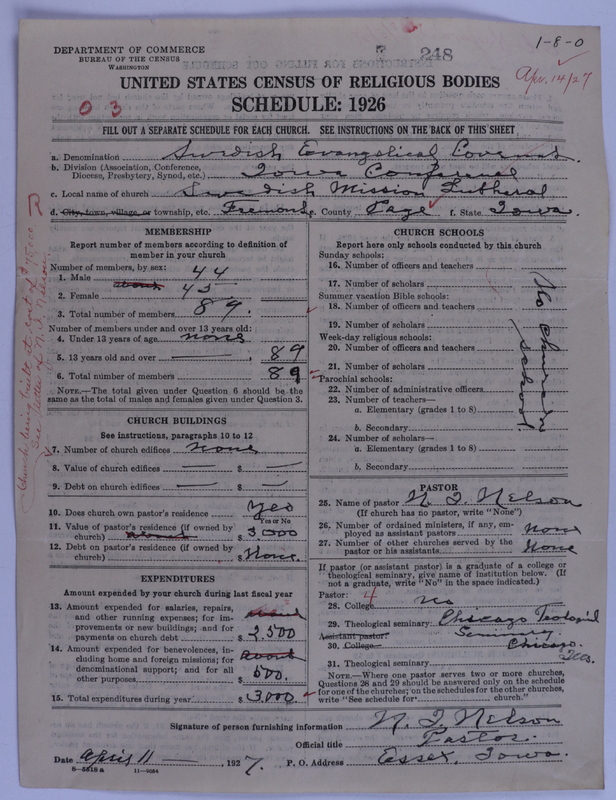 DEPARTMENT OF COMMERCE
BUREAU OF THE CENSUS
WASHINGTON
248
1-8-0
Apr. 14/27
UNITED STATES CENSUS OF RELIGIOUS BODIES
SCHEDULE: 1926
0 3
FILL OUT A SEPARATE SCHEDULE FOR EACH CHURCH. SEE INSTRUCTIONS ON THE BACK OF THIS SHEET
a. Denomination Swedish Evangelical Covenant.
b. Division (Association, Conference, Diocese, Presbytery, Synod, etc.) Iowa Conference
c. Local name of church Swedish Mission Lutheran
d. City, town, village, or township, etc. Fremont e. County Page f. State Iowa.
MEMBERSHIP
Report number of members according to definition of member in your church
Number of members, by sex:
1. Male 44
2. Female about 45
3. Total number of members 89.
Number of members under and over 13 years old:
4. Under 13 years of age none
5. 13 years old and over 89
6. Total number of members 89
NOTE.—The total given under Question 6 should be the same as the total of males and females given under Question 3.
CHURCH BUILDINGS
See instructions, paragraphs 10 to 12
7. Number of church edifices none
8. Value of church edifices — $ —
9. Debt on church edifices — $ —
10. Does church own pastor's residence? Yes
Yes or No
11. Value of pastor's residence (if owned by church) about $ 3000
12. Debt on pastor's residence (if owned by church) $ None.
EXPENDITURES
Amount expended by your church during last fiscal year
13. Amount expended for salaries, repairs, and other running expenses; for improvements or new buildings; and for payments on church debt about $ 2,500
14. Amount expended for benevolences, including home and foreign missions; for denominational support; and for all other purposes about $ 500.
15. Total expenditures during year $ 3,000
CHURCH SCHOOLS
Report here only schools conducted by this church
Sunday schools:
16. Number of officers and teachers
17. Number of scholars
Summer vacation Bible schools:
18. Number of officers and teachers
19. Number of scholars
Week-day religious schools:
20. Number of officers and teachers
21. Number of scholars
Parochial schools:
22. Number of administrative officers
23. Number of teachers—
a. Elementary (grades 1 to 8)
b. Secondary
24. Number of scholars—
a. Elementary (grades 1 to 8)
b. Secondary
No church school
PASTOR
25. Name of pastor N. J. Nelson
(If church has no pastor, write "None")
26. Number of ordained ministers, if any, employed as assistant pastors None
27. Number of other churches served by the pastor or his assistants None
If pastor (or assistant pastor) is a graduate of a college or theological seminary, give name of institution below. (If not a graduate, write "No" in the space indicated.)
Pastor: 4
28. College no
29. Theological seminary Chicago Teological Seminary
Assistant pastor:
30. College Chicago. Ills.
31. Theological seminary
NOTE.—Where one pastor serves two or more churches, Questions 28 and 29 should be answered only on the schedule for one of the churches; on the schedules for the other churches, write "See schedule for church."
Signature of person furnishing information N. J. Nelson
Official title Pastor.
Date April 11 — , 1927. P. O. Address Essex, Iowa.
8—5518 a 11—9054
Church being built at cost of $15000
See letter of N. J. Nelson